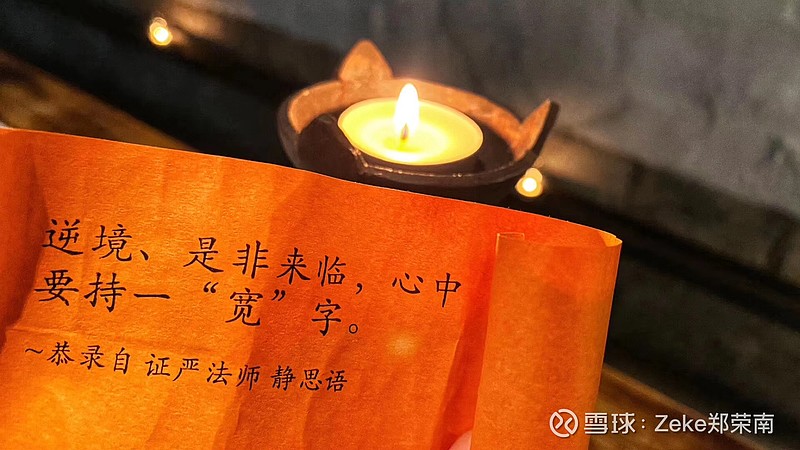 逆境、是非来临，心中
要持一“宽”字。
~恭录自 证严法师 静思语
雪球：Zeke郑荣南